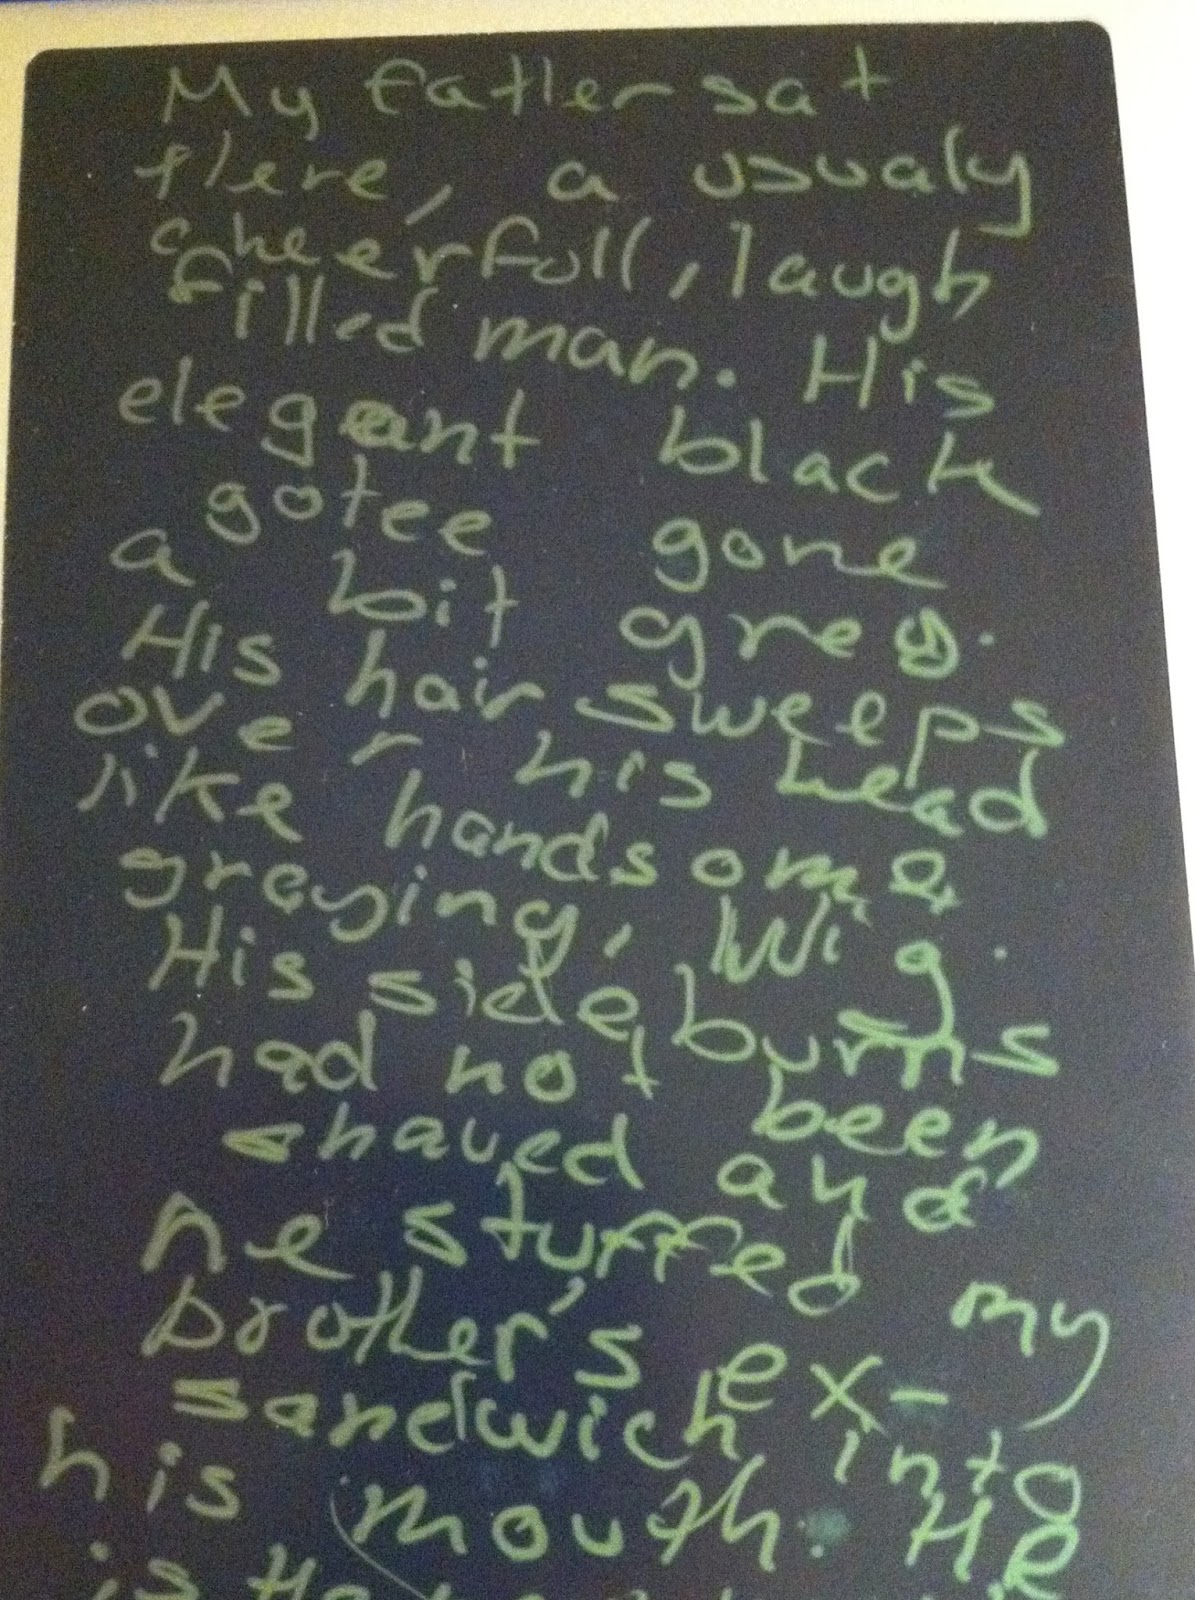 My father sat
there, a usualy
cheerfull, laugh
filled man. His
elegant black
gotee gone
a bit grey.
His hair sweeps
over his head
like handsome
greying, Wig.
His side burns
had not been
shaved and
he stuffed my
brother's ex-
sandwich into
his mouth. He
is